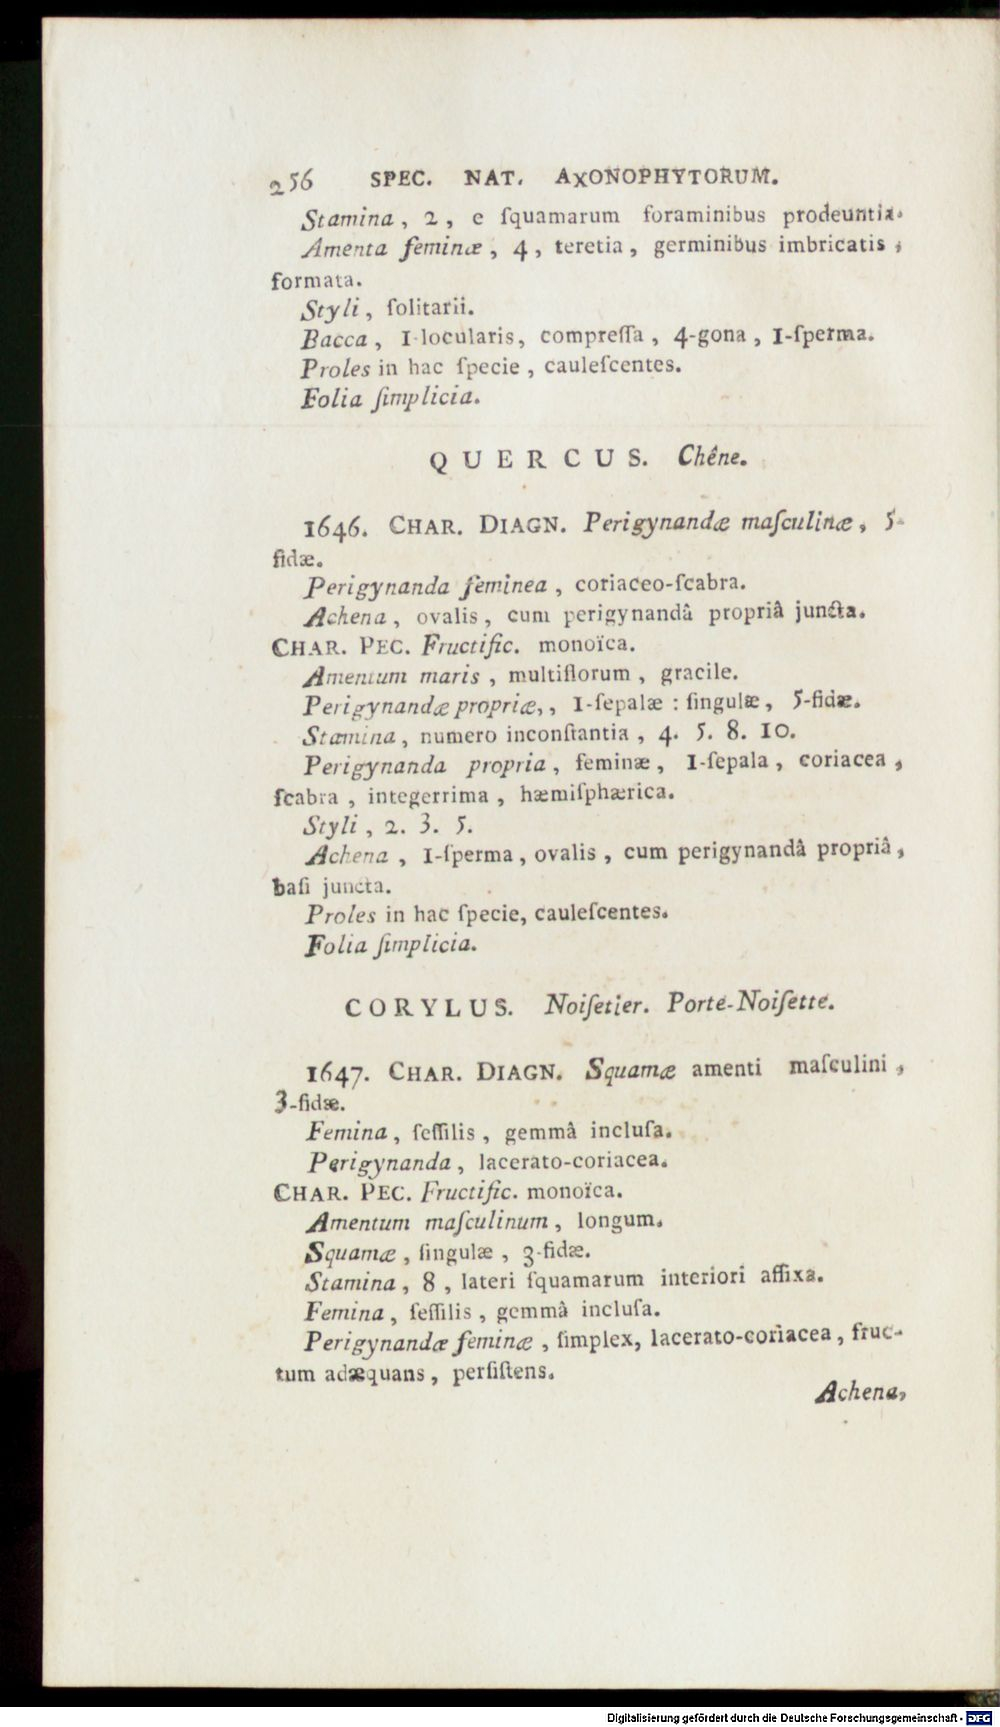 256 SPEC. NAT. AXONOPHYTORUM.
Stamina, 2, e ſquamarum foraminibus prodeuntia.
Amenta feminæ, 4, teretia, germinibus imbricatis,
formata.
Styli, ſolitarii.
Bacca, 1-locularis, compreſſa, 4-gona, 1-ſperma.
Proles in hac ſpecie, cauleſcentes.
Folia ſimplicia.
QUERCUS. Chêne.
1646. CHAR. DIAGN. Perigynandæ maſculinæ, 5-
fidæ.
Perigynanda feminea, coriaceo-ſcabra.
Achena, ovalis, cum perigynandâ propriâ juncta.
CHAR. PEC. Fructific. monoïca.
Amentum maris, multiflorum, gracile.
Perigynandæ propriæ,, 1-ſepalæ : ſingulæ, 5-fidæ.
Stamina, numero inconſtantia, 4. 5. 8. 10.
Perigynanda propria, feminæ, 1-ſepala, coriacea,
ſcabra, integerrima, hæmiſphærica.
Styli, 2. 3. 5.
Achena, 1-ſperma, ovalis, cum perigynandâ propriâ,
baſi juncta.
Proles in hac ſpecie, cauleſcentes.
Folia ſimplicia.
CORYLUS. Noiſetier. Porte-Noiſette.
1647. CHAR. DIAGN. Squamæ amenti maſculini,
3-fidæ.
Femina, ſeſſilis, gemmâ incluſa.
Perigynanda, lacerato-coriacea.
CHAR. PEC. Fructific. monoïca.
Amentum maſculinum, longum.
Squamæ, ſingulæ, 3-fidæ.
Stamina, 8, lateri ſquamarum interiori affixa.
Femina, ſeſſilis, gemmâ incluſa.
Perigynandæ feminæ, ſimplex, lacerato-coriacea, fruc-
tum adæquans, perſiſtens.
Achena,
Digitalisierung gefördert durch die Deutsche Forschungsgemeinschaft - DFG